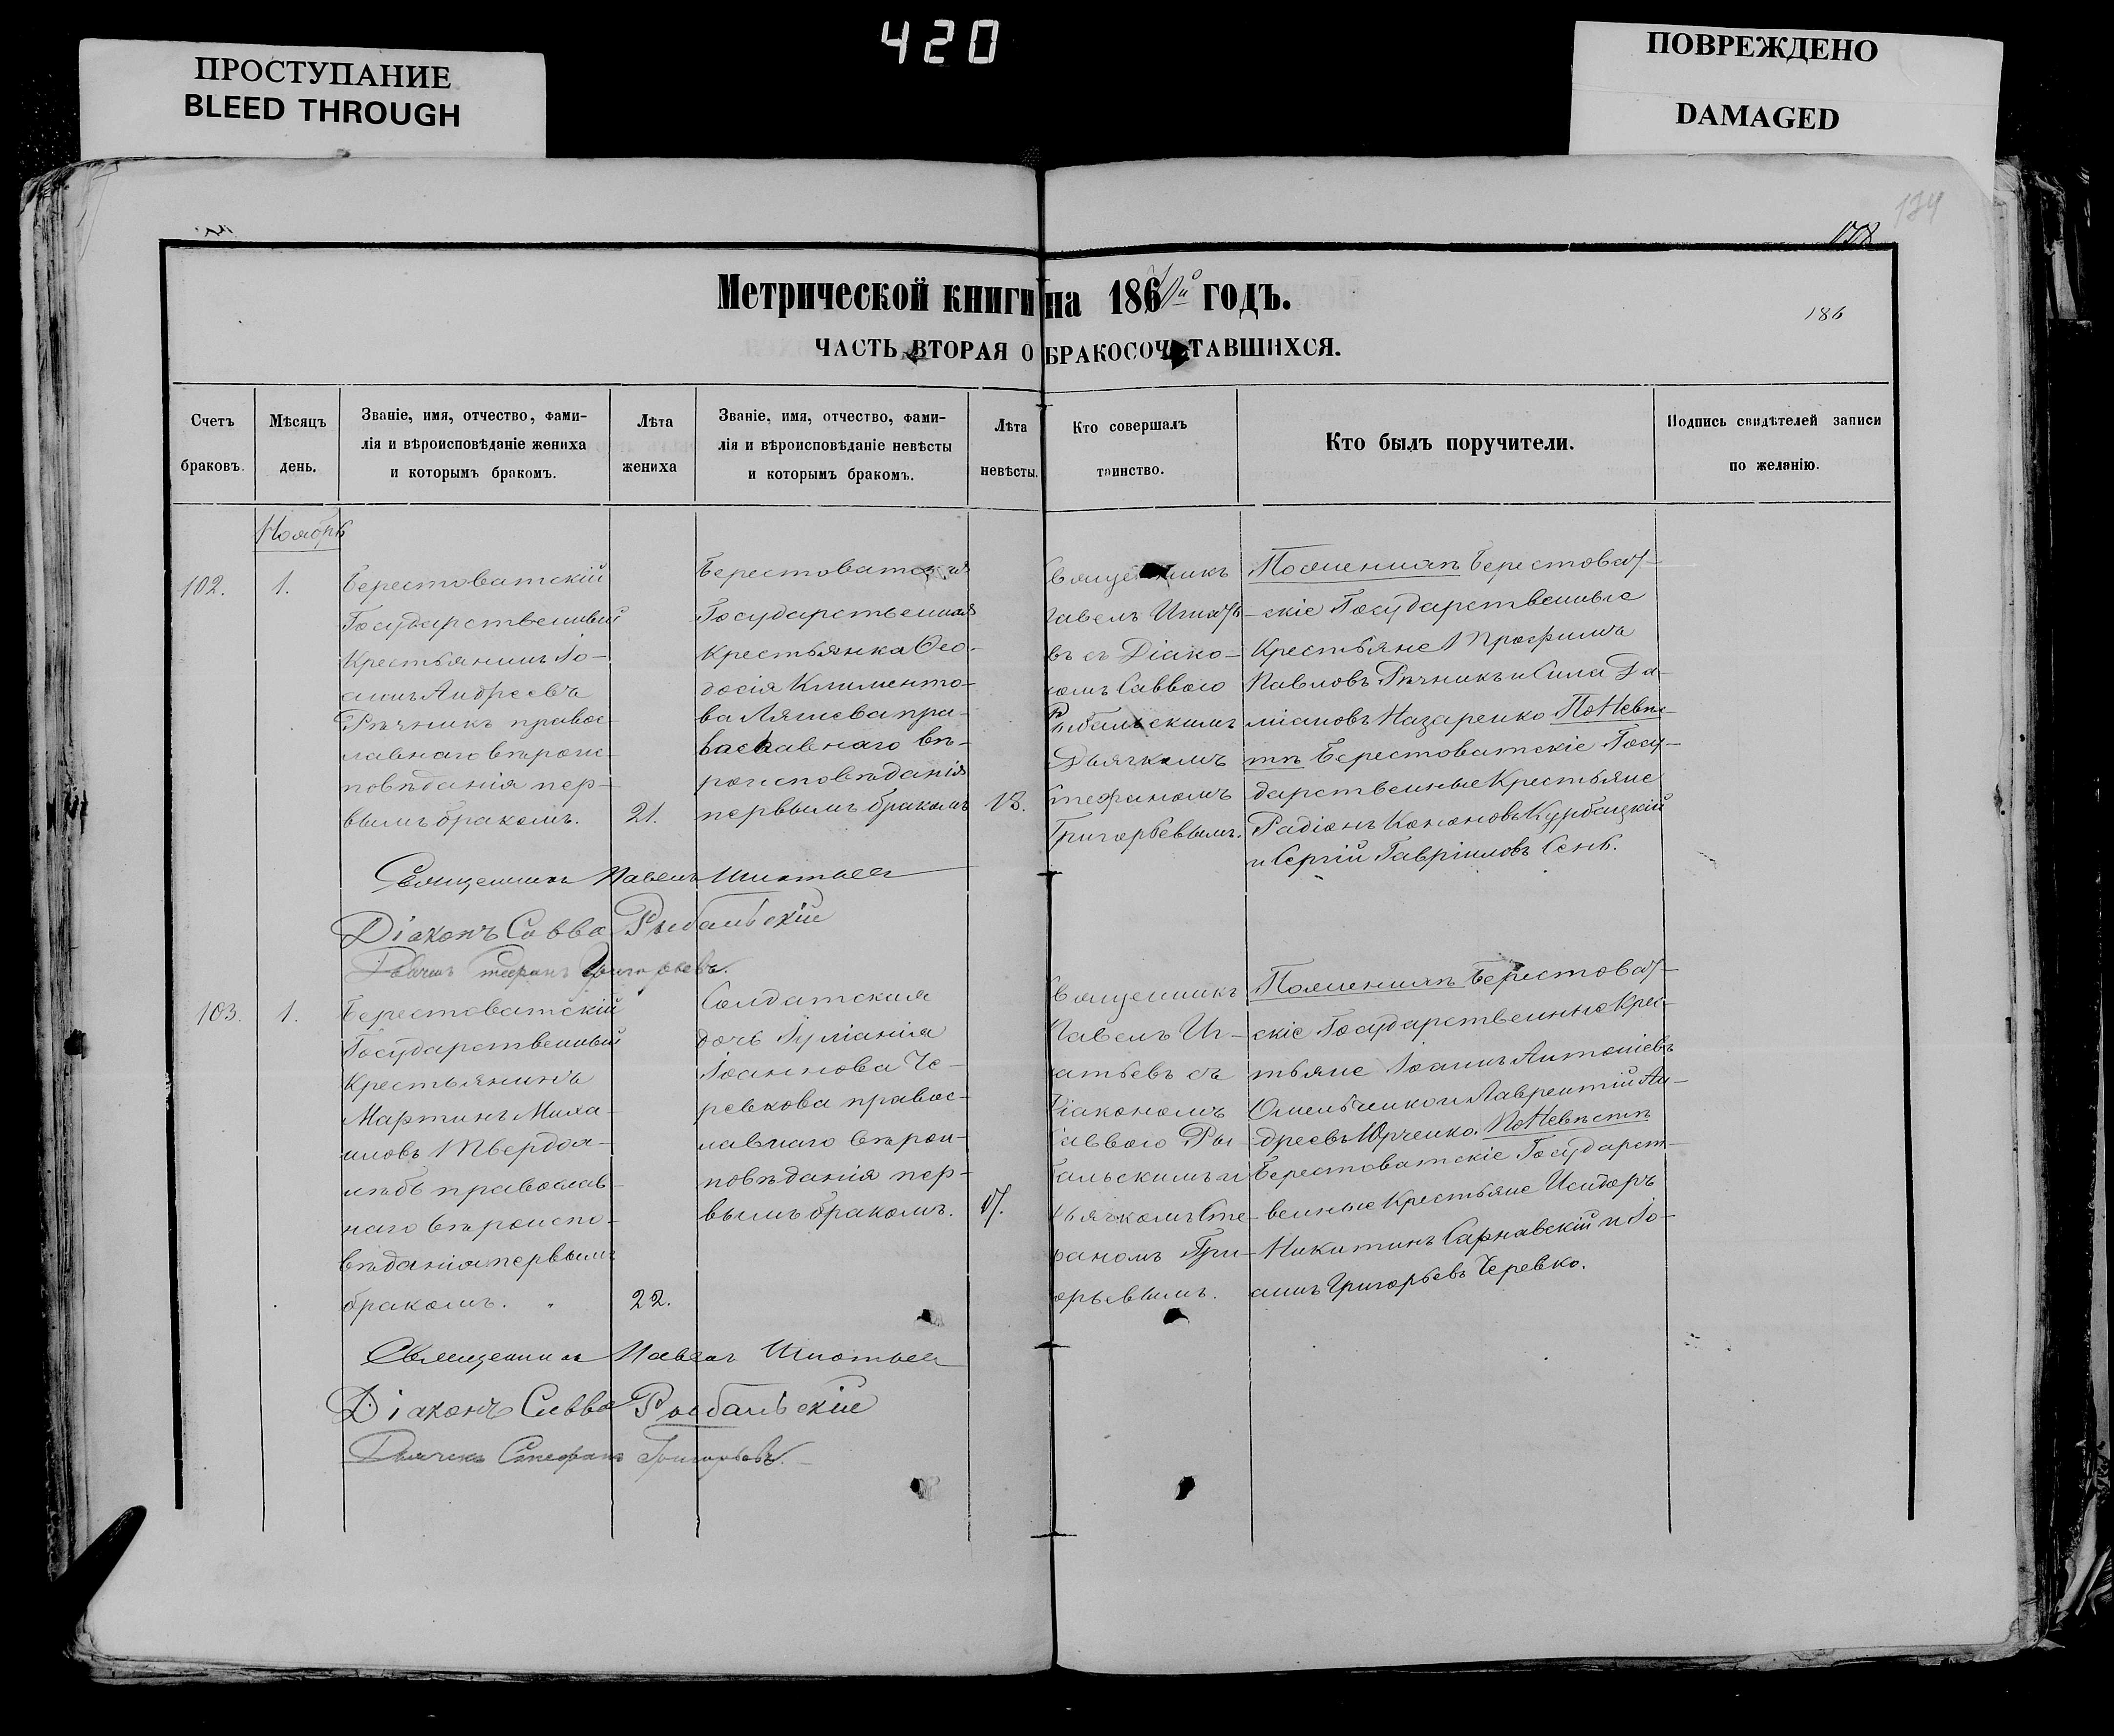 420
ПРОСТУПАНИЕ
BLEED THROUGH
ПОВРЕЖДЕНО
DAMAGED
134
Метрической книги на 186 годъ.
186
ЧАСТЬ ВТОРАЯ О БРАКОСОЧЕТАВШИХСЯ.
Счетъ браковъ.
Мѣсяцъ день.
Званіе, имя, отчество, фами-
лія и вѣроисповѣданіе жениха
и которымъ бракомъ.
Лѣта жениха
Званіе, имя, отчество, фами-
лія и вѣроисповѣданіе невѣсты
и которымъ бракомъ.
Лѣта невѣсты.
Кто совершалъ
таинство.
Кто былъ поручители.
Подпись свидѣтелей записи
по желанію.
Ноябрь
102.
1.
Берестоватскій
Государственный
Крестьянинъ Іо-
аннъ Андреевъ
Рѣчникъ правос-
лавнаго вѣроис-
повѣданія пер-
вымъ бракомъ.
21.
Берестоватская
Государственная
Крестьянка Ѳео-
досія Клименто-
ва Ляшева пра-
вославнаго вѣ-
роисповѣданія
первымъ бракомъ
Священникъ
Павелъ Игнать
въ съ Діако-
номъ Саввою
Рыбальскимъ
Дьячкомъ
Стефаномъ
Григорьевымъ.
По Женихѣ Берестоват-
скіе Государственные
Крестьяне Трофимъ
Павловъ Рѣчникъ и Сила Да-
міановъ Назаренко По Невѣс-
тѣ Берестоватскіе Госу-
дарственные Крестьяне
Радіонъ Кононовъ Курбацкій
и Сергій Гавріиловъ Сень.
Священникъ Павелъ Игнатьев
Діаконъ Савва Рыбальскій
Дьячекъ Стефанъ Григорьевъ.
103.
1.
Берестоватскій
Государственный
Крестьянинъ
Мартинъ Миха-
иловъ Твердох-
лѣбъ православ-
наго вѣроиспо-
вѣданія первымъ
бракомъ.
22.
Солдатская
дочь Іуліанія
Іоаннова Че-
ревкова правос-
лавнаго вѣрои-
повѣданія пер-
вымъ бракомъ.
Священникъ
Павелъ Иг-
натьевъ съ
Діакономъ
Саввою Ры-
бальскимъ и
Дьячкомъ Сте-
фаномъ Гри-
орьевымъ.
По Женихѣ Берестоват-
скіе Государственные Крес-
тьяне Іоаннъ Антоніевъ
Омельченко и Лаврентій Ан-
дреевъ Юрченко. По Невѣстѣ
Берестоватскіе Государст-
венные Крестьяне Исидоръ
Никитинъ Сарнавскій и Іо-
аннъ Григорьевъ Черевко.
Священникъ Павелъ Игнатьев
Діаконъ Савва Рыбальскій
Дьячекъ Стефанъ Григорьевъ.